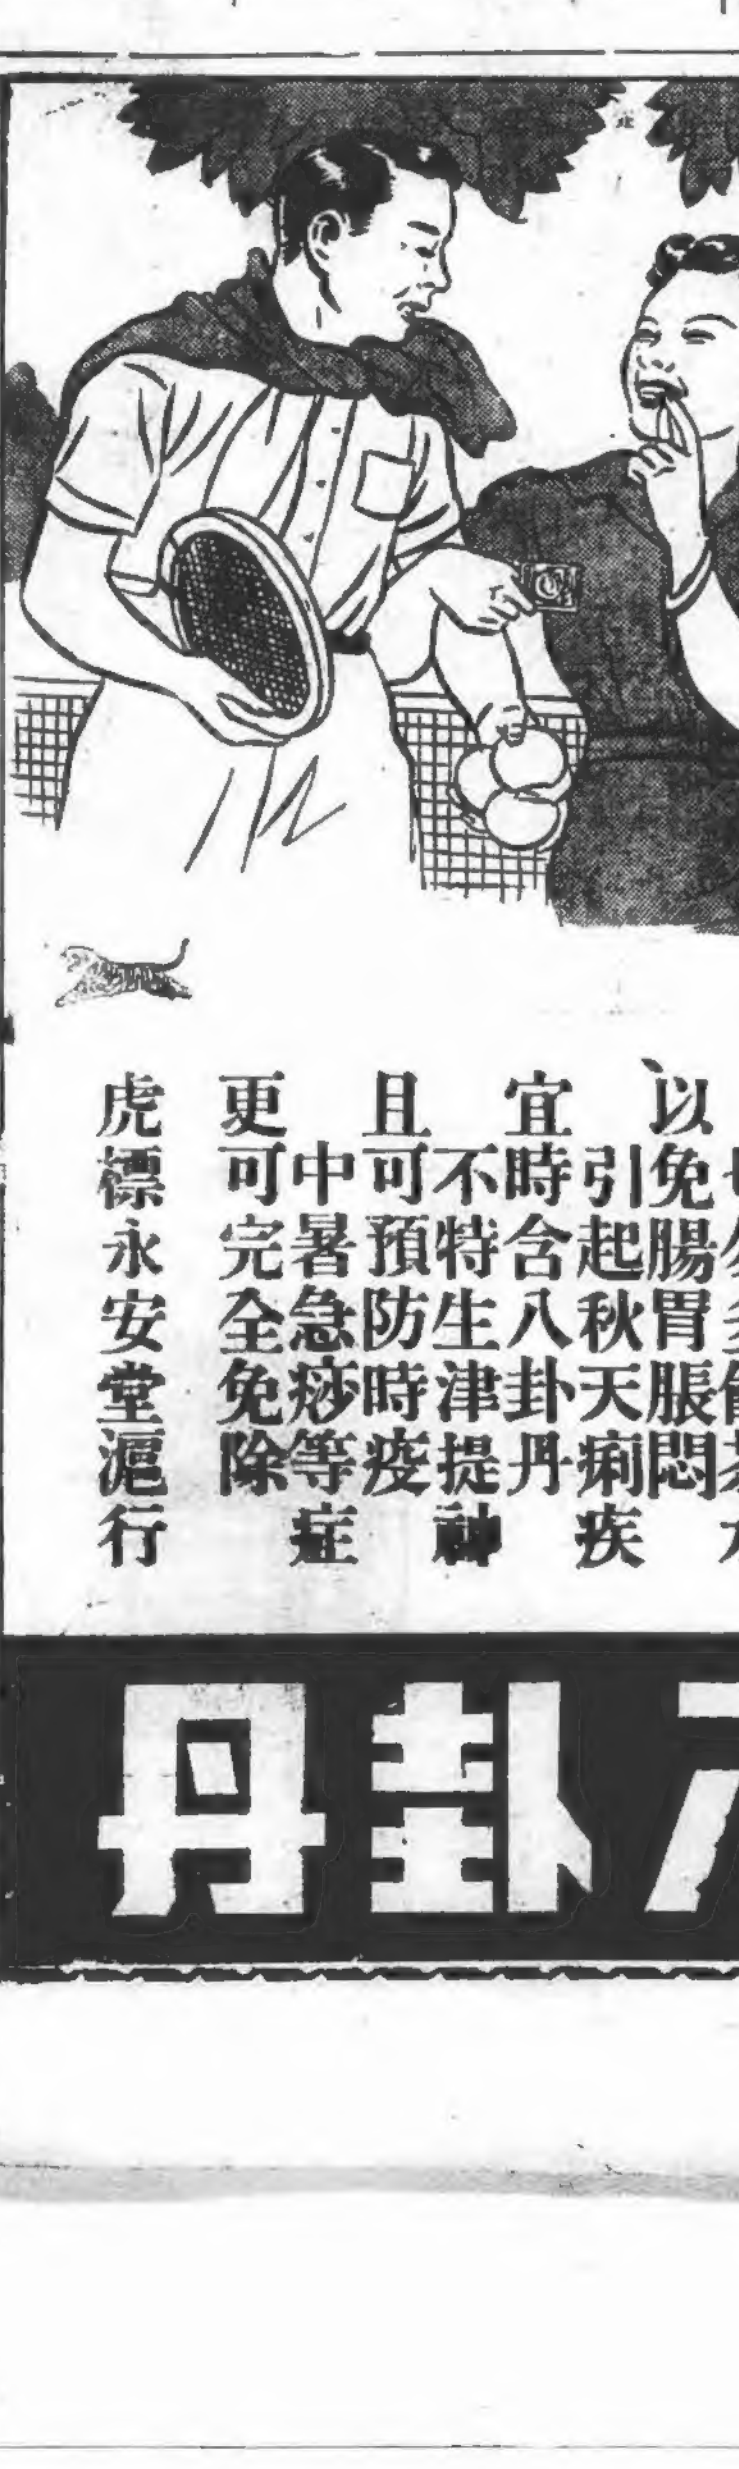 以免腸胃脹悶
引起秋天痢疾
宜時含八卦丹
不特生津提神
且可預防時疫
中暑急痧等症
更可完全免除
虎標永安堂滬行
卦丹